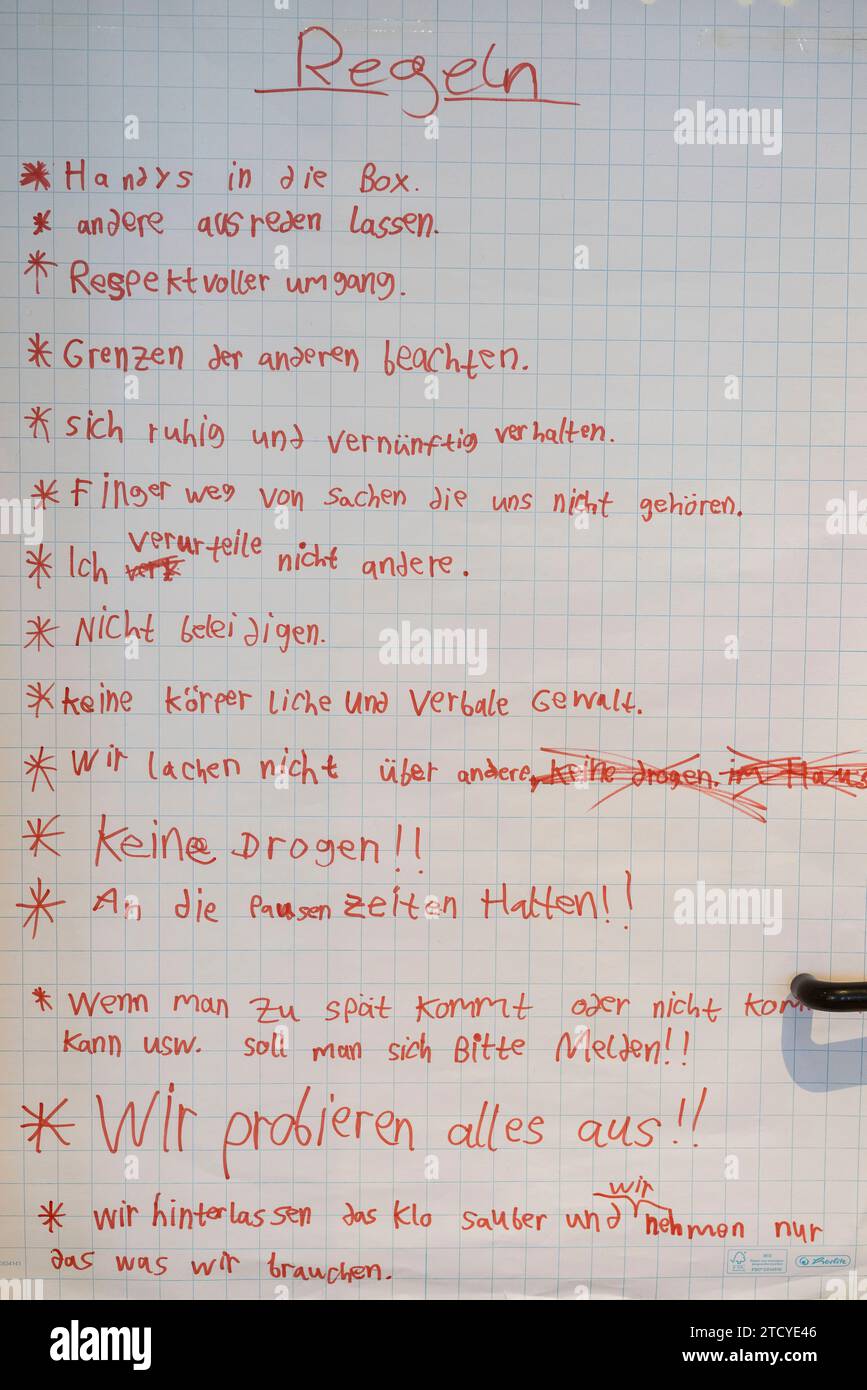 Regeln
* Handys in die Box.
* andere ausreden lassen.
* Respektvoller umgang.
* Grenzen der anderen beachten.
* sich ruhig und vernünftig verhalten.
* Finger weg von sachen die uns nicht gehören.
* Ich verurteile nicht andere.
* Nicht beleidigen.
* keine körper liche und verbale Gewalt.
* Wir lachen nicht über andere, keine drogen. im Haus
* Keine Drogen!!
* An die pausen zeiten Halten!!
* Wenn man zu spät kommt oder nicht
kann usw. soll man sich Bitte Melden!!
* Wir probieren alles aus!!
* wir hinterlassen das Klo sauber und wir nehmen nur
das was wir brauchen.
FSC
Herlitz
a alamy
alamy
Image ID: 2TCYE46
www.alamy.com